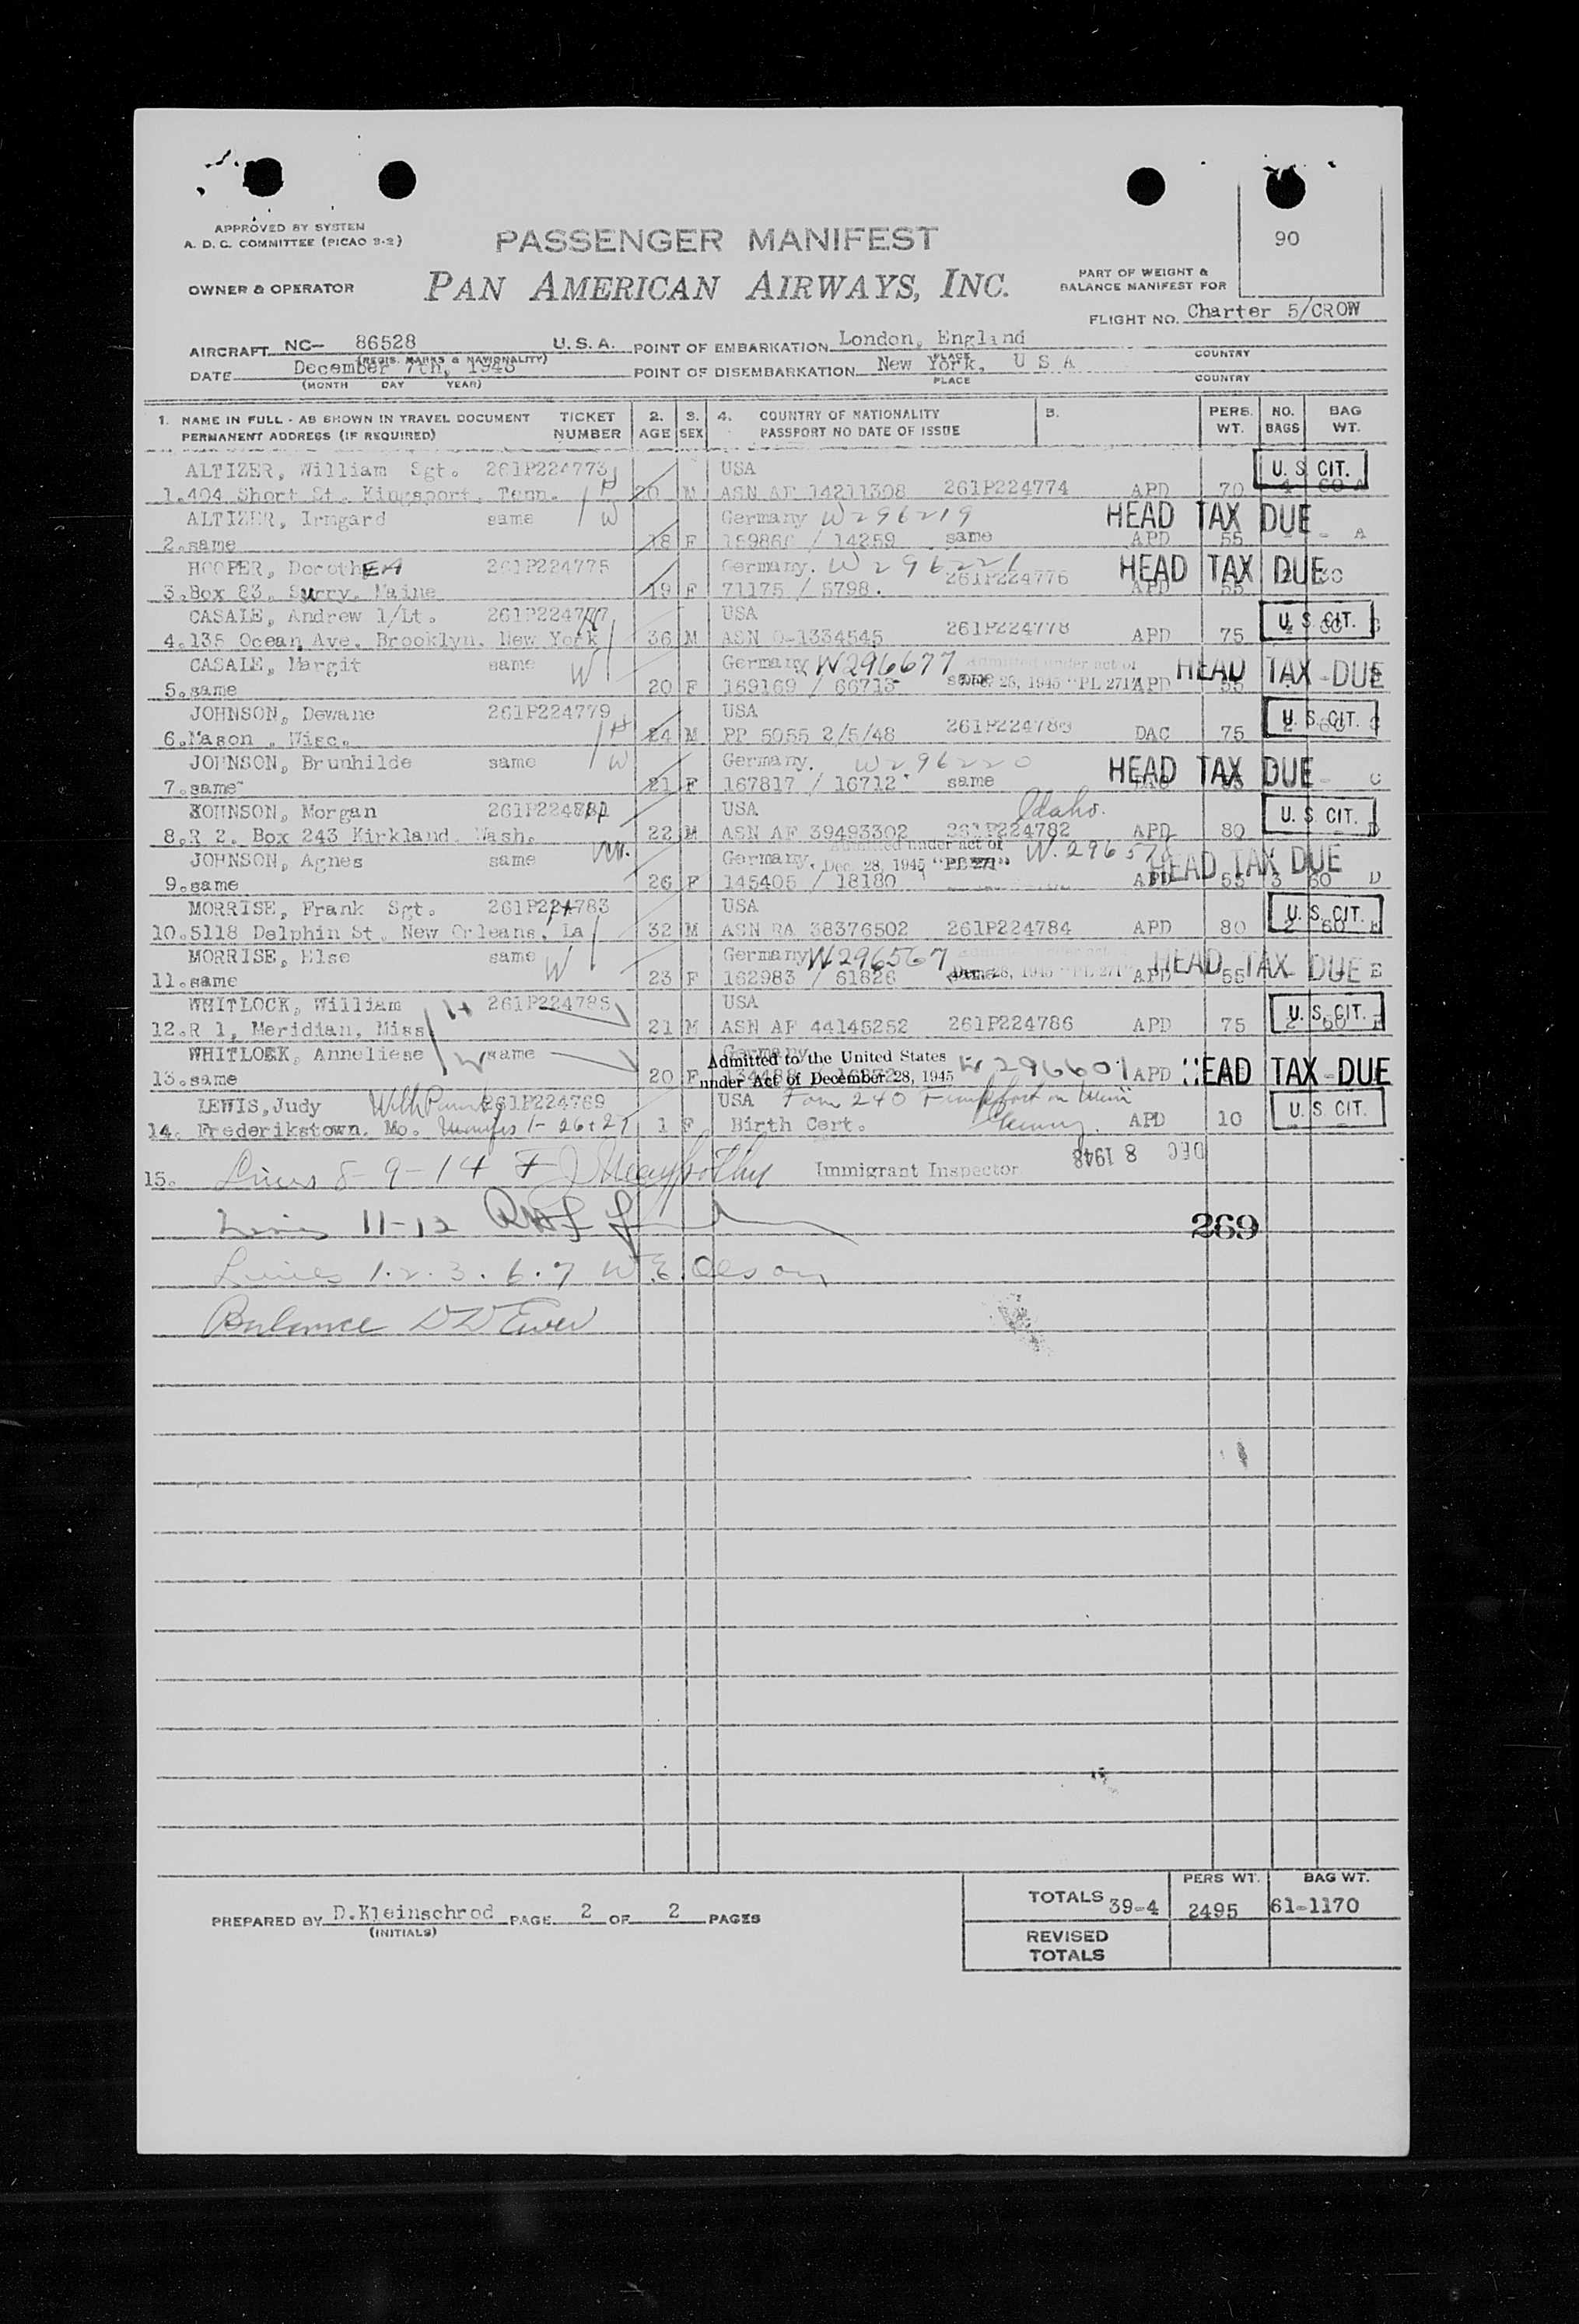 APPROVED BY SYSTEM
A. D. C. COMMITTEE (PICAO 3-2)
PASSENGER MANIFEST
90
OWNER & OPERATOR
PAN AMERICAN AIRWAYS, INC.
PART OF WEIGHT &
BALANCE MANIFEST FOR
FLIGHT NO. Charter 5/CROW
AIRCRAFT NC- 86528 U.S.A. POINT OF EMBARKATION London, England
(REGIS. MARKS & NATIONALITY) PLACE COUNTRY
DATE December 7th, 1948 POINT OF DISEMBARKATION New York, U S A
(MONTH DAY YEAR) PLACE COUNTRY
1. NAME IN FULL - AS SHOWN IN TRAVEL DOCUMENT TICKET 2. 3. 4. COUNTRY OF NATIONALITY 5. PERS. NO. BAG
PERMANENT ADDRESS (IF REQUIRED) NUMBER AGE SEX PASSPORT NO DATE OF ISSUE WT. BAGS WT.
ALTIZER, William Sgt. 261P224773 H USA U. S. CIT.
1. 404 Short St. Kingsport, Tenn. 20 M ASN AF 14211308 261P224774 APD 70 4 60 A
ALTIZER, Irmgard same W Germany W296219 HEAD TAX DUE
2. same 18 F / 14259 same APD 55 - - A
HOOPER, DorothEA 261P224775 Germany. W296221 HEAD TAX DUE
3. Box 83, Surry, Maine 19 F 71175 / 5798. 261P224776 APD 55
CASALE, Andrew 1/Lt. 261P224777 H USA U. S. CIT.
4. 135 Ocean Ave. Brooklyn, New York 36 M ASN O-1334545 261P224778 APD 75
CASALE, Margit same W Germany W296677 Admitted under act of HEAD TAX DUE
5. same 20 F 159169 / 66713 same Dec. 28, 1945 "PL 271" APD 55
JOHNSON, Dewane 261P224779 H USA U. S. CIT.
6. Mason, Wisc. 24 M PP 5055 2/5/48 261P224780 DAC 75
JOHNSON, Brunhilde same W Germany. W296220 HEAD TAX DUE
7. same 21 F 167817 / 16712 same DAC 55 - C
JOHNSON, Morgan 261P224781 USA Idaho. U. S. CIT.
8. R 2. Box 243 Kirkland. Wash. 22 M ASN AF 39493302 261P224782 APD 80 D
JOHNSON, Agnes same Germany. Admitted under act of Dec. 28, 1945 "PL 271" HEAD TAX DUE
9. same 26 F 145405 / 18180 APD 55 3 60 D
MORRISE, Frank Sgt. 261P224783 H USA U. S. CIT.
10. 5118 Delphin St. New Orleans, La 32 M ASN RA 38376502 261P224784 APD 80 2 60 E
MORRISE, Else same W Germany W296567 HEAD TAX DUE
11. same 23 F 162983 / 61826 same Dec. 28, 1945 "PL 271" APD 55 - - E
WHITLOCK, William H 261P224785 USA U. S. CIT.
12. R 1, Meridian, Miss. 21 M ASN AF 44145252 261P224786 APD 75 2 60 F
WHITLOCK, Anneliese W same Germany Admitted to the United States W296601 HEAD TAX DUE
13. same 20 F under Act of December 28, 1945 APD
LEWIS, Judy 261P224769 USA U. S. CIT.
14. Frederikstown. Mo. 1- 26+27 1 F Birth Cert. Germany. APD 10
15. Lines 8-9-14 Immigrant Inspector DEC 8 1948
Lines 11-12 269
Lines 1. 2. 3. 6. 7 W.E. Olson
Balance
PREPARED BY D.Kleinschrod PAGE 2 OF 2 PAGES
(INITIALS)
PERS WT. BAG WT.
TOTALS 39-4 2495 61-1170
REVISED
TOTALS